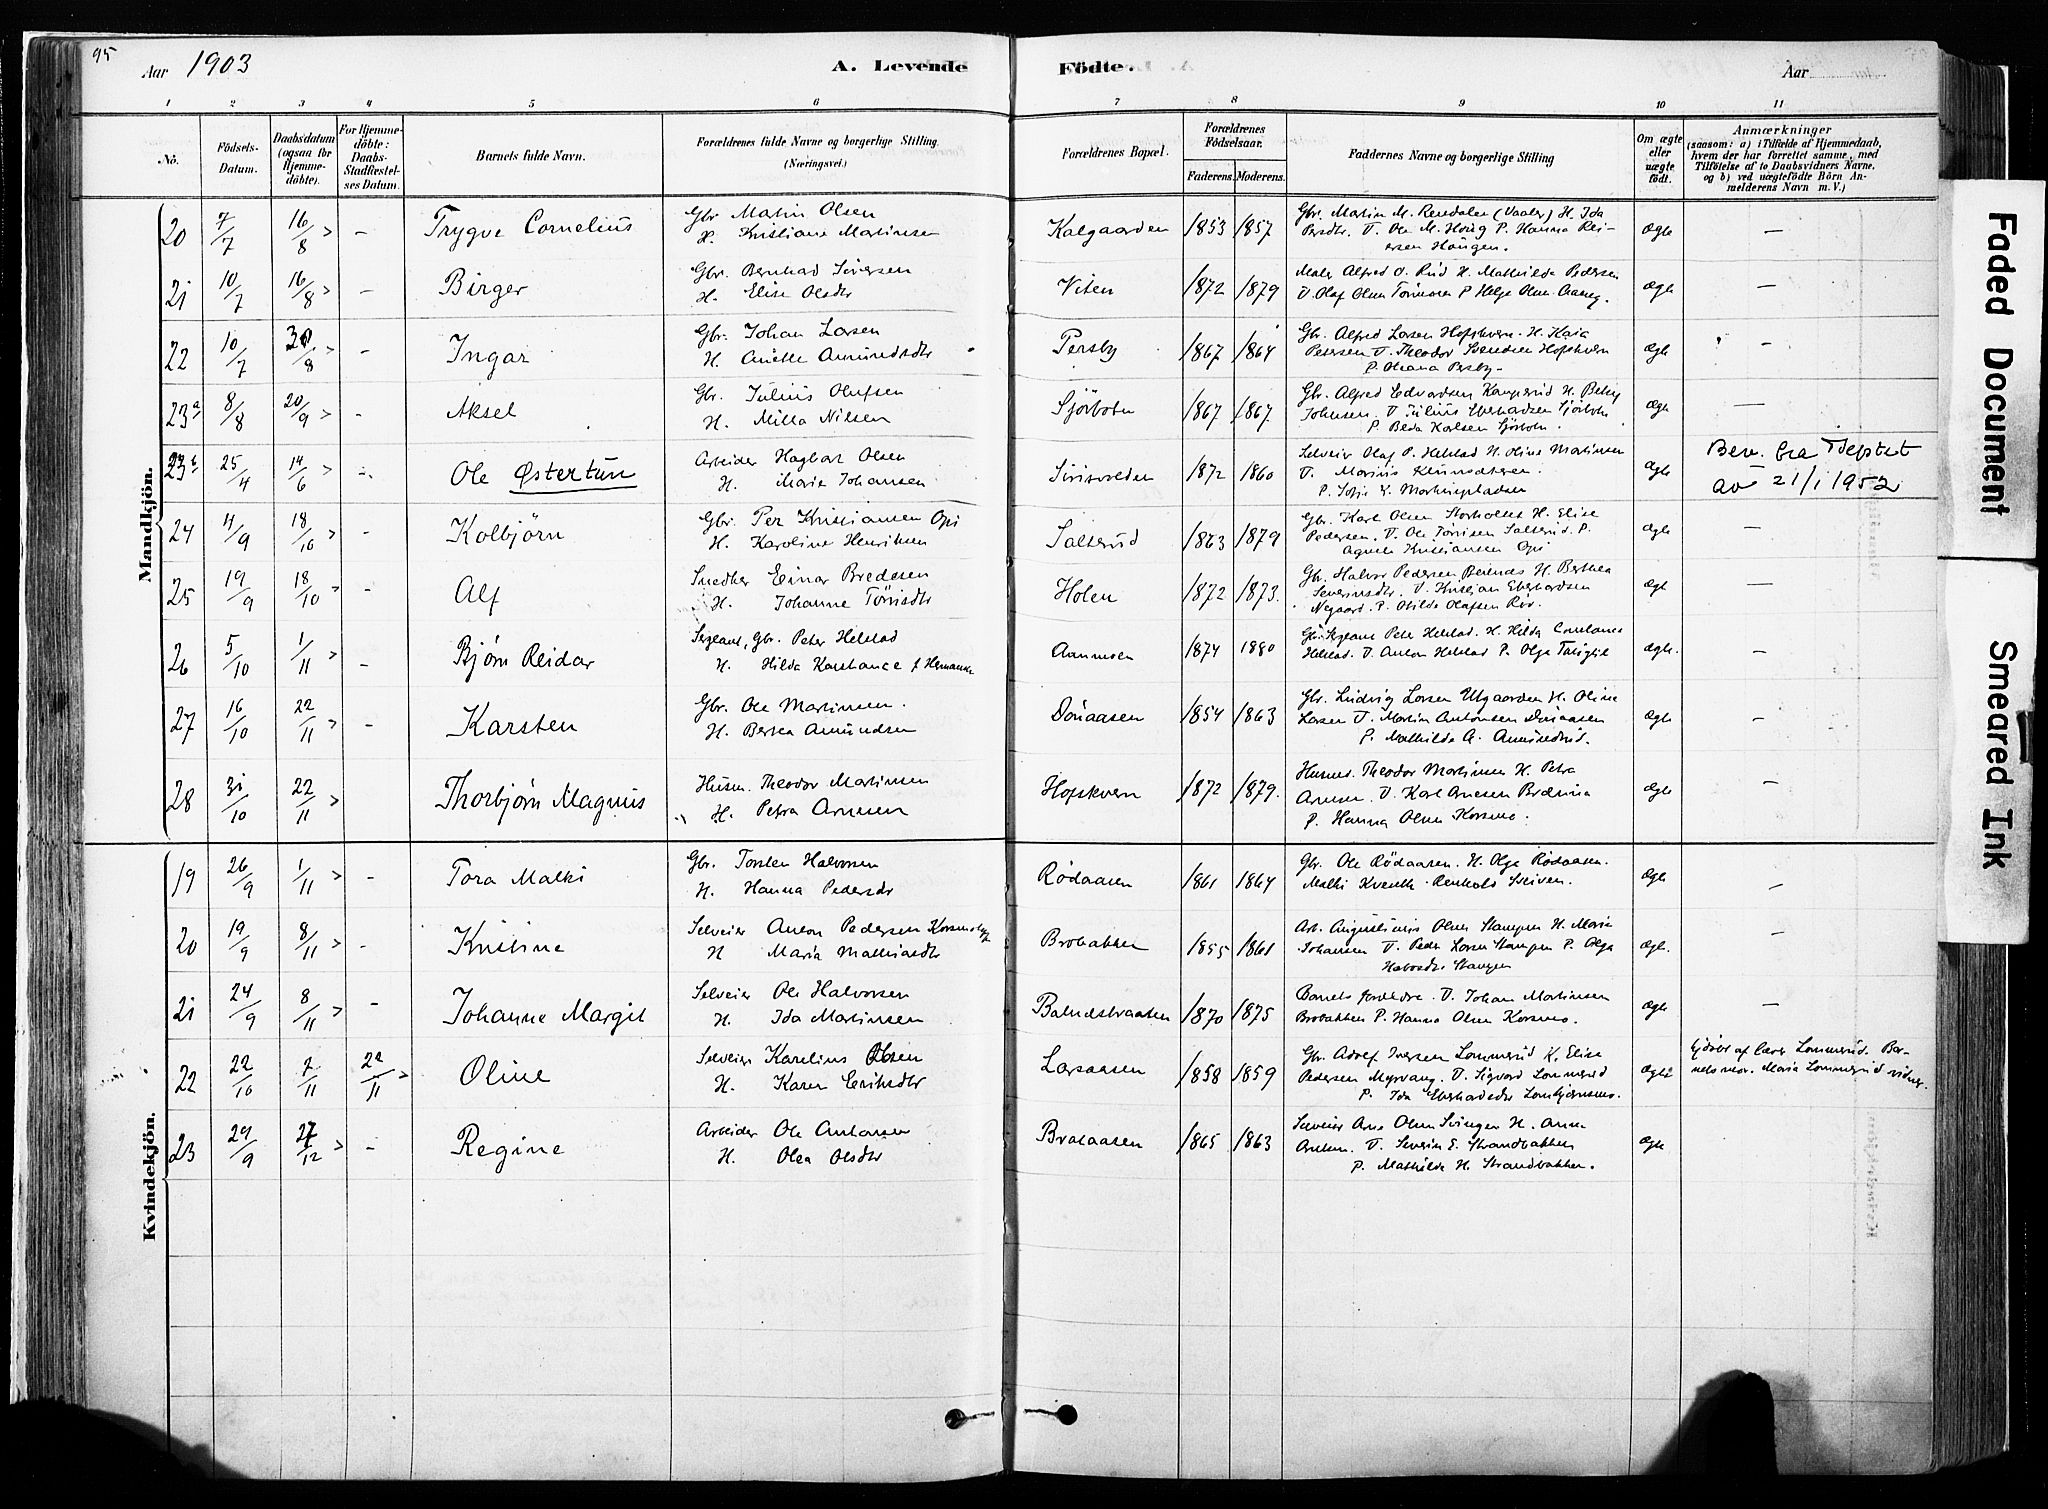 95
Aar 1903
A. Levende Födte.
Aar
1 2 3 4 5 6 7 8 9 10 11
No.
Födsels-Datum.
Daabsdatum (ogsaa for Hjemme-döbte).
For Hjemme-döbte: Daabs-Stadfæstel-ses Datum.
Barnets fulde Navn.
Forældrenes fulde Navne og borgerlige Stilling. (Næringsvei.)
Forældrenes Bopæl.
Forældrenes Födselsaar.
Faderens. Moderens.
Faddernes Navne og borgerlige Stilling
Om ægte eller uægte födt.
Anmærkninger
(saasom: a) i Tilfælde af Hjemmedaab,
hvem der har forrettet samme, med
Tilföielse af to Daabsvidners Navne.
og b) ved uægtefödte Börn An-
melderens Navn m. V.)
Mandkjön.
20 7/7 16/8 > – Trygve Cornelius Gbr. Martin Olsen
H. Kristiane Martinsen
Kalgaarden 1853 1857 Gbr. Martin M. Rendalen (Vaaler) H. Ida
Persdtr. U. Ole M. Houg P. Hanna Rei-
ersen Haugen.
Ægte –
21 10/7 16/8 > – Birger Gbr. Bernhard Iversen
H. Elise Olsdtr
Viten 1872 1879 Maler Alfred O. Rud H. Mathilde Pedersen
U. Olaf Olsen P. Helga Olsen
Ægte –
22 10/7 30/8 > – Ingar Gbr. Johan Larsen
H. Anette Amundsdtr
Persby 1867 1864 Gbr. Alfred Larsen Hofskvern. H. Kaia
Petersen U. Theodor Svendsen Hofskvern
P. Oleana Persby –
Ægte –
23a 8/8 20/9 > – Aksel Gbr. Julius Olufsen
H. Milla Nilsen
Sjørbotn 1867 1867 Gbr. Alfred Edvardsen Kamperud H. Betsy
Johnsen. U. Julius Eberhardsen Sjørbotn
P. Beda Karlsen Sjørbotn.
Ægte –
23b 25/4 14/6 > – Ole Østertun Arbeider Hagbart Olsen
H. Marie Johansen
1872 1860 Selveier Olaf P. Helstad H. Oline Martinsen
U. Marius
P.
Ægte Bev. fra
av 21/1 1952
24 11/9 18/10 > – Kolbjörn Gbr. Per Kristiansen Opi
H. Karoline Henriksen
Salterud 1863 1879 Gbr. Karl Olsen Storholtet H. Elise
Pedersen. U. Ole Tørrisen Salterud. P.
Agnete Kristiansen Opi
Ægte –
25 19/9 18/10 > – Alf Snedker Einar Bredesen
H. Johanne Tørrisdtr
Holen 1872 1873. Gbr. Halvor Pedersen H. Berthea
Severinsdtr. U. Kristian Eberhardsen
Negaard. P. Hilda Olafsen
Ægte –
26 5/10 1/11 > – Bjørn Reidar Sergeant, Gbr. Peter Helstad
H. Hilda Konstance f. Hermansen
1874 1880 Gbr. Sergeant Peter Helstad. H. Hilda Constance
Helstad. U. Anton Helstad P. Olga
Ægte. –
27 16/10 22/11 > – Karsten Gbr. Ole Martinsen.
H. Berthea Amundsen
Dönaasen 1854 1863 Gbr. Ludvig Larsen Utgaarden H. Oline
Larsen U. Martin Antonsen Dönaasen
P. Mathilde A. Amundrud.
Ægte –
28 31/10 22/11 > Thorbjörn Magnus Husm. Theodor Martinsen
H. Petra Arnesen
Hofskvern 1872 1879. Husmd. Theodor Martinsen H. Petra
Arnesen. U. Karl Arnesen
P. Hanna Olsen Korsmo.
Ægte –
Kvindekjön.
19 26/9 1/11 > – Tora Malki Gbr. Torsten Halvorsen
H. Hanna Pedersdtr
Rödaasen 1861 1864 Gbr. Ole Rödaasen. H. Olga Rödaasen.
Malki Renhold
Ægte –
20 19/9 8/11 > – Kristine Selveier Anton Pedersen
H Maria Mathiasdtr
Brobakken 1855 1861 Arb. Augustinius Olsen Stampen H. Maria
Johansen U. Peder Larsen Stampen P. Olga
Halvorsdtr Stampen
Ægte. –
21 24/9 8/11 > – Johanne Margit Selveier Ole Halvorsen
H. Ida Martinsen
1870 1875 Barnets forældre. U. Johan Martinsen
Brobakken P. Hanna Olsen Korsmo.
Ægte –
22 22/10 7/11 22/11 > Oline Selveier Karelius Olsen
H. Karen Eriksdtr
Larsaasen 1858 1859 Gbr. Adolf Iversen Lommerud K. Elise
Pedersen Myrvang. U. Sigvard Lommerud
P. Ida
Ægte hjdöbt af Lærer Lommerud. Bar-
nets mor. Maria Lommerud vidner.
23 29/9 27/12 > – Regine Arbeider Ole Antonsen
H. Olea Olsdtr
Brataasen 1865 1863 Selveier Arne Olsen Svingen H. Anne
U. Severin E. Strandbakken
P. Mathilde H. Strandbakken.
Ægte
Faded Document
Smeared Ink